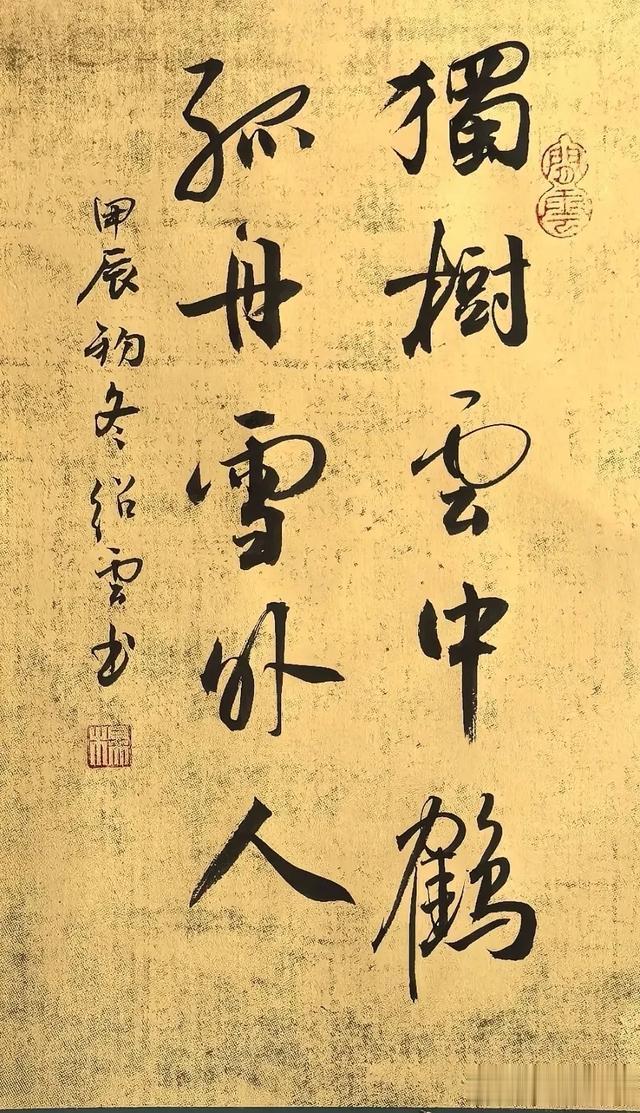 獨樹雲中鶴
孤舟雪外人
甲辰初冬紹雲书